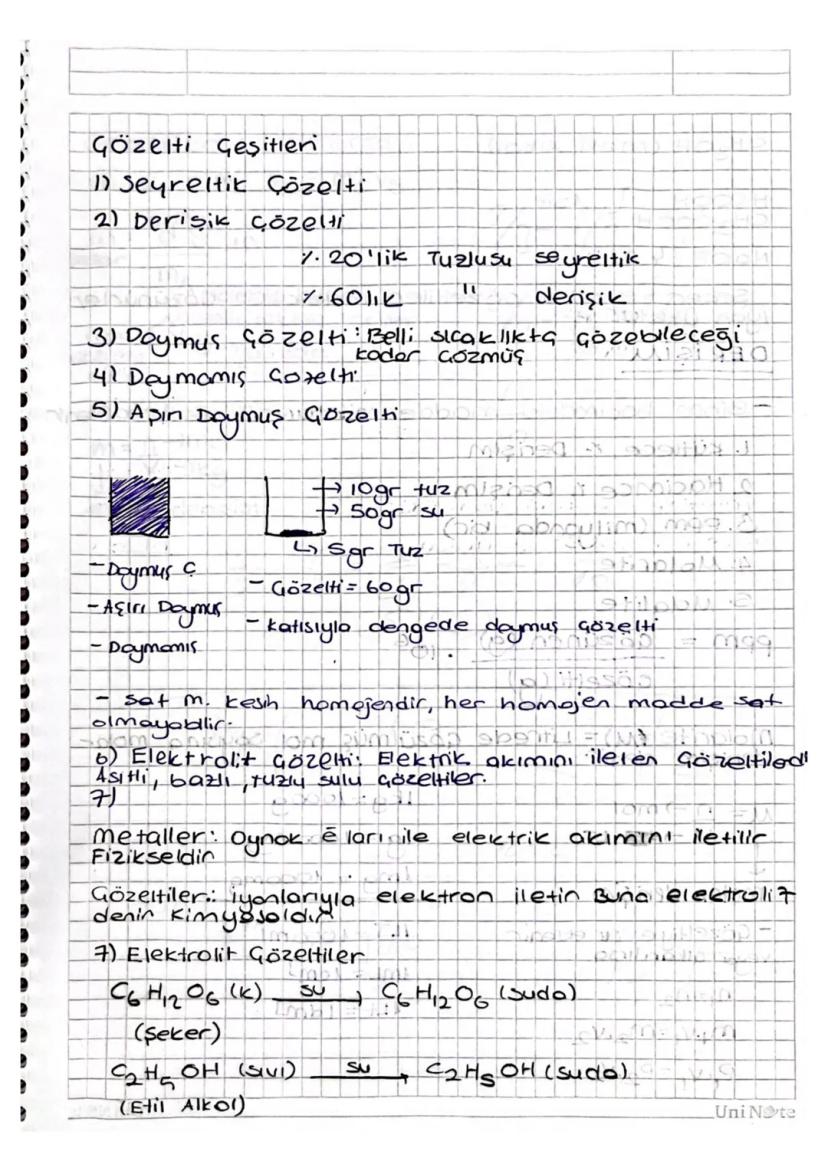 Çözelti Çeşitleri
1) Seyreltik Çözelti
2) Derişik Çözelti
%20'lik Tuzlusu seyreltik
%60lık " derişik
3) Doymuş Çözelti: Belli sıcaklıkta çözebileceği
kadar çözmüş
4) Doymamış Çözelti
5) Aşırı Doymuş Çözelti
→ 10gr tuz
→ 50gr su
↳ 5gr Tuz
- Doymuş Ç
- Çözelti = 60gr
- Aşırı Doymuş
- katısıyla dengede doymuş çözelti
- Doymamış
- saf m. kesin homojendir, her homojen madde saf
olmayabilir.
6) Elektrolit Çözelti: Elektrik akımını ileten Çözeltiler
Asitli, bazlı, tuzlu sulu çözeltiler.
7)
Metaller: Oynak ē ları ile elektrik akımını iletilir
Fizikseldir
Çözeltiler: iyonlarıyla elektron iletir. Buna elektrolit
denir Kimyasaldır
7) Elektrolit Çözeltiler
C6H12O6 (k) su → C6H12O6 (suda)
(şeker)
C2H5OH (sıvı) su → C2H5OH (suda)
(Etil Alkol)
Uni Note